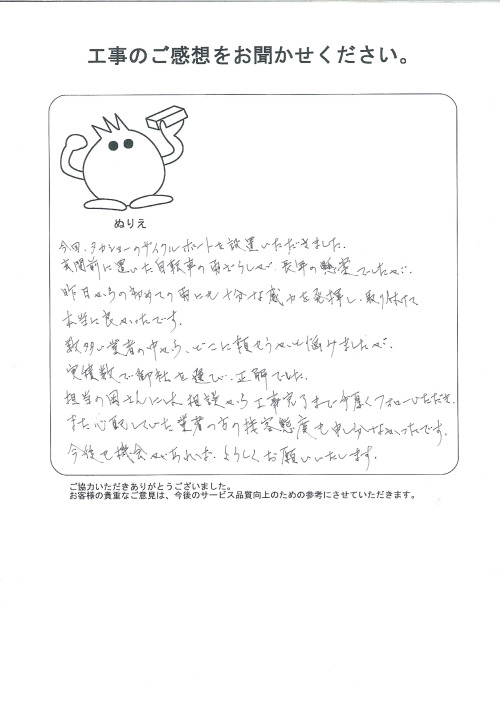 工事のご感想をお聞かせください。
ぬりえ
今回、タカショーのサイクルポートを設置いただきました。
玄関前に置いた自転車の雨ざらしが、長年の懸案でしたが、
昨日からの初めての雨にも十分な威力を発揮し、取り付けて
本当に良かったです。
数多い業者の中から、どこに頼もうかと悩けましたが、
実績数で御社を選び、正解でした。
担当の岡さんには相談から工事完了まで手厚くフォローいただき、
また心配していた業者の方の接客態度も申し分なかったです。
今後も機会があれば、よろしくお願いいたします。
ご協力いただきありがとうございました。
お客様の貴重なご意見は、今後のサービス品質向上のための参考にさせていただきます。